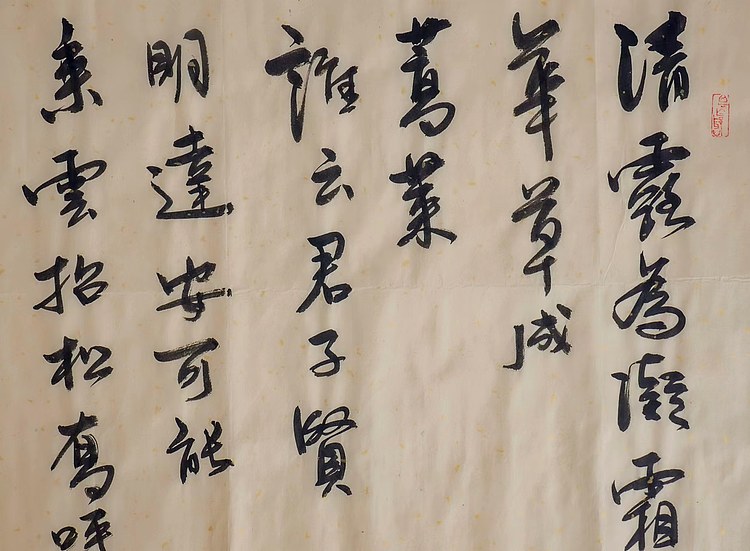 清露為凝霜
華草成
蒿萊
誰云君子賢
明達安可能
乘雲招松喬呼